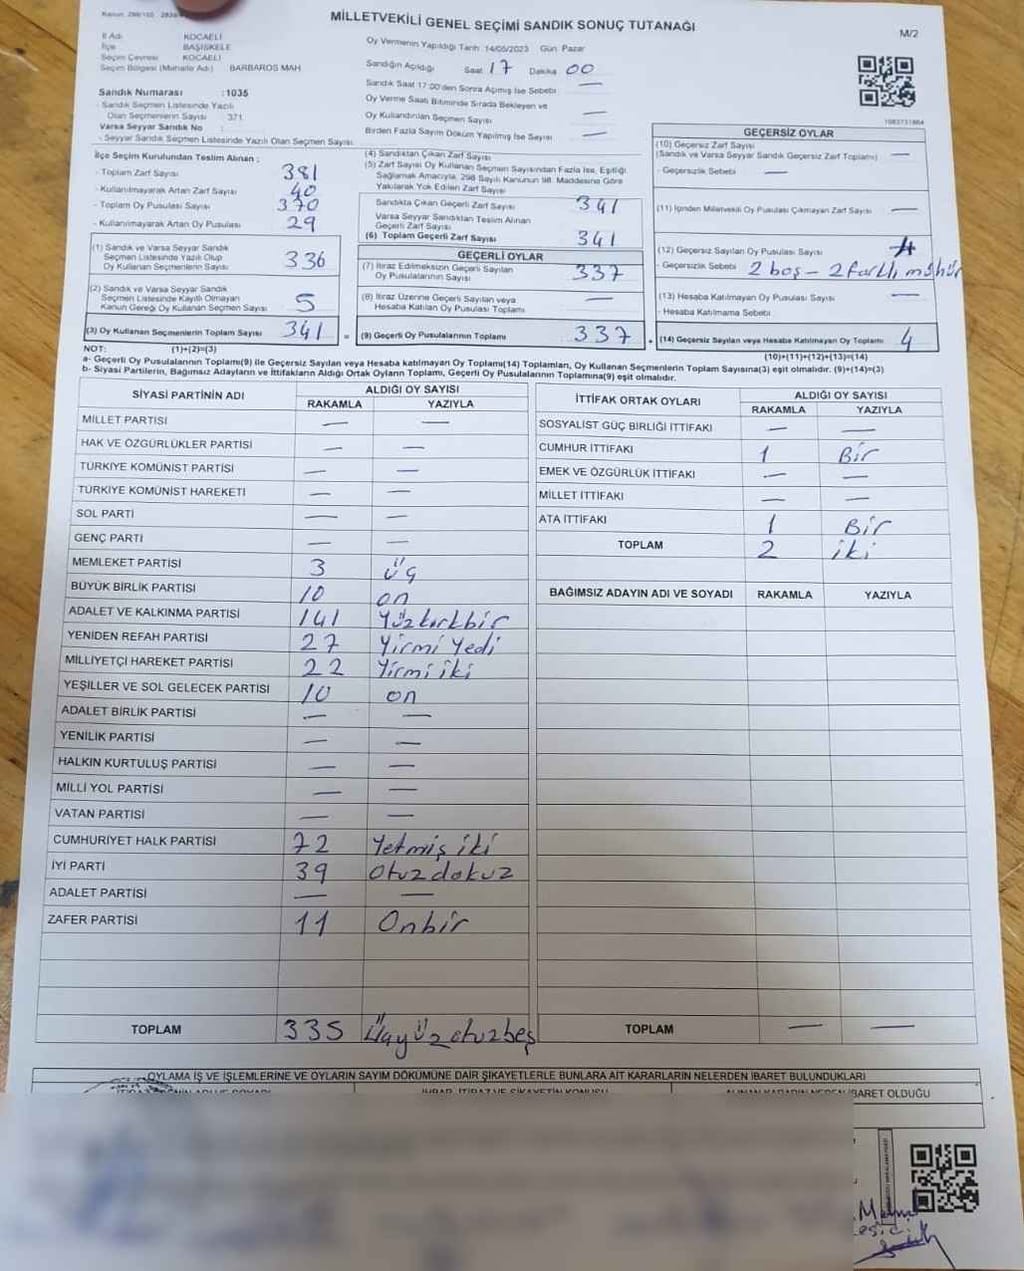 MİLLETVEKİLİ GENEL SEÇİMİ SANDIK SONUÇ TUTANAĞI
M/2
İl Adı KOCAELİ
İlçe BAŞİSKELE
Seçim Çevresi KOCAELİ
Seçim Bölgesi (Mahalle Adı) BARBAROS MAH
Sandık Numarası :1035
- Sandık Seçmen Listesinde Yazılı
Olan Seçmenlerin Sayısı 371
Varsa Seyyar Sandık No :
- Seyyar Sandık Seçmen Listesinde Yazılı Olan Seçmen Sayısı
Oy Vermenin Yapıldığı Tarih :14/05/2023 Gün Pazar
Sandığın Açıldığı Saat 17 Dakika 00
Sandık Saat 17:00'den Sonra Açılmış İse Sebebi —
Oy Verme Saati Bitiminde Sırada Bekleyen ve
Oy Kullandırılan Seçmen Sayısı —
Birden Fazla Sayım Döküm Yapılmış İse Sayısı —
1083731864
İlçe Seçim Kurulundan Teslim Alınan ;
- Toplam Zarf Sayısı 381
- Kullanılmayarak Artan Zarf Sayısı 40
- Toplam Oy Pusulası Sayısı 370
- Kullanılmayarak Artan Oy Pusulası 29
(1) Sandık ve Varsa Seyyar Sandık
Seçmen Listesinde Yazılı Olup
Oy Kullanan Seçmenlerin Sayısı 336
(2) Sandık ve Varsa Seyyar Sandık
Seçmen Listesinde Kayıtlı Olmayan
Kanun Gereği Oy Kullanan Seçmen Sayısı 5
(3) Oy Kullanan Seçmenlerin Toplam Sayısı 341 =
(4) Sandıktan Çıkan Zarf Sayısı
(5) Zarf Sayısı Oy Kullanan Seçmen Sayısından Fazla İse, Eşitliği
Sağlamak Amacıyla, 298 Sayılı Kanunun 98. Maddesine Göre
Yakılarak Yok Edilen Zarf Sayısı
Sandıkta Çıkan Geçerli Zarf Sayısı 341
Varsa Seyyar Sandıktan Teslim Alınan
Geçerli Zarf Sayısı
(6) Toplam Geçerli Zarf Sayısı 341
GEÇERLİ OYLAR
(7) İtiraz Edilmeksizin Geçerli Sayılan
Oy Pusulalarının Sayısı 337
(8) İtiraz Üzerine Geçerli Sayılan veya
Hesaba Katılan Oy Pusulaları Toplamı —
(9) Geçerli Oy Pusulalarının Toplamı 337 +
GEÇERSİZ OYLAR
(10) Geçersiz Zarf Sayısı
(Sandık ve Varsa Seyyar Sandık Geçersiz Zarf Toplamı) —
- Geçersizlik Sebebi —
(11) İçinden Milletvekili Oy Pusulası Çıkmayan Zarf Sayısı —
(12) Geçersiz Sayılan Oy Pusulası Sayısı 4
- Geçersizlik Sebebi 2 boş - 2 farklı mühür
(13) Hesaba Katılmayan Oy Pusulası Sayısı —
- Hesaba Katılmama Sebebi
(14) Geçersiz Sayılan veya Hesaba Katılmayan Oy Toplamı 4
NOT: (1)+(2)=(3)
(10)+(11)+(12)+(13)=(14)
a- Geçerli Oy Pusulalarının Toplamı(9) ile Geçersiz Sayılan veya Hesaba katılmayan Oy Toplamı(14) Toplamları, Oy Kullanan Seçmenlerin Toplam Sayısına(3) eşit olmalıdır. (9)+(14)=(3)
b- Siyasi Partilerin, Bağımsız Adayların ve İttifakların Aldığı Ortak Oyların Toplamı, Geçerli Oy Pusulalarının Toplamına(9) eşit olmalıdır.
SİYASİ PARTİNİN ADI ALDIĞI OY SAYISI
RAKAMLA YAZIYLA
MİLLET PARTİSİ — —
HAK VE ÖZGÜRLÜKLER PARTİSİ — —
TÜRKİYE KOMÜNİST PARTİSİ — —
TÜRKİYE KOMÜNİST HAREKETİ — —
SOL PARTİ — —
GENÇ PARTİ — —
MEMLEKET PARTİSİ 3 üç
BÜYÜK BİRLİK PARTİSİ 10 on
ADALET VE KALKINMA PARTİSİ 141 Yüzkırkbir
YENİDEN REFAH PARTİSİ 27 Yirmi Yedi
MİLLİYETÇİ HAREKET PARTİSİ 22 Yirmi iki
YEŞİLLER VE SOL GELECEK PARTİSİ 10 on
ADALET BİRLİK PARTİSİ — —
YENİLİK PARTİSİ — —
HALKIN KURTULUŞ PARTİSİ — —
MİLLİ YOL PARTİSİ — —
VATAN PARTİSİ — —
CUMHURİYET HALK PARTİSİ 72 Yetmiş iki
İYİ PARTİ 39 Otuzdokuz
ADALET PARTİSİ — —
ZAFER PARTİSİ 11 Onbir
TOPLAM 335 Üçyüzotuzbeş
İTTİFAK ORTAK OYLARI ALDIĞI OY SAYISI
RAKAMLA YAZIYLA
SOSYALİST GÜÇ BİRLİĞİ İTTİFAKI — —
CUMHUR İTTİFAKI 1 Bir
EMEK VE ÖZGÜRLÜK İTTİFAKI — —
MİLLET İTTİFAKI — —
ATA İTTİFAKI 1 Bir
TOPLAM 2 iki
BAĞIMSIZ ADAYIN ADI VE SOYADI RAKAMLA YAZIYLA
TOPLAM — —
OYLAMA İŞ VE İŞLEMLERİNE VE OYLARIN SAYIM DÖKÜMÜNE DAİR ŞİKAYETLERLE BUNLARA AİT KARARLARIN NELERDEN İBARET BULUNDUKLARI
İHBAR, İTİRAZ VE ŞİKAYETİN KONUSU
İBARET OLDUĞU